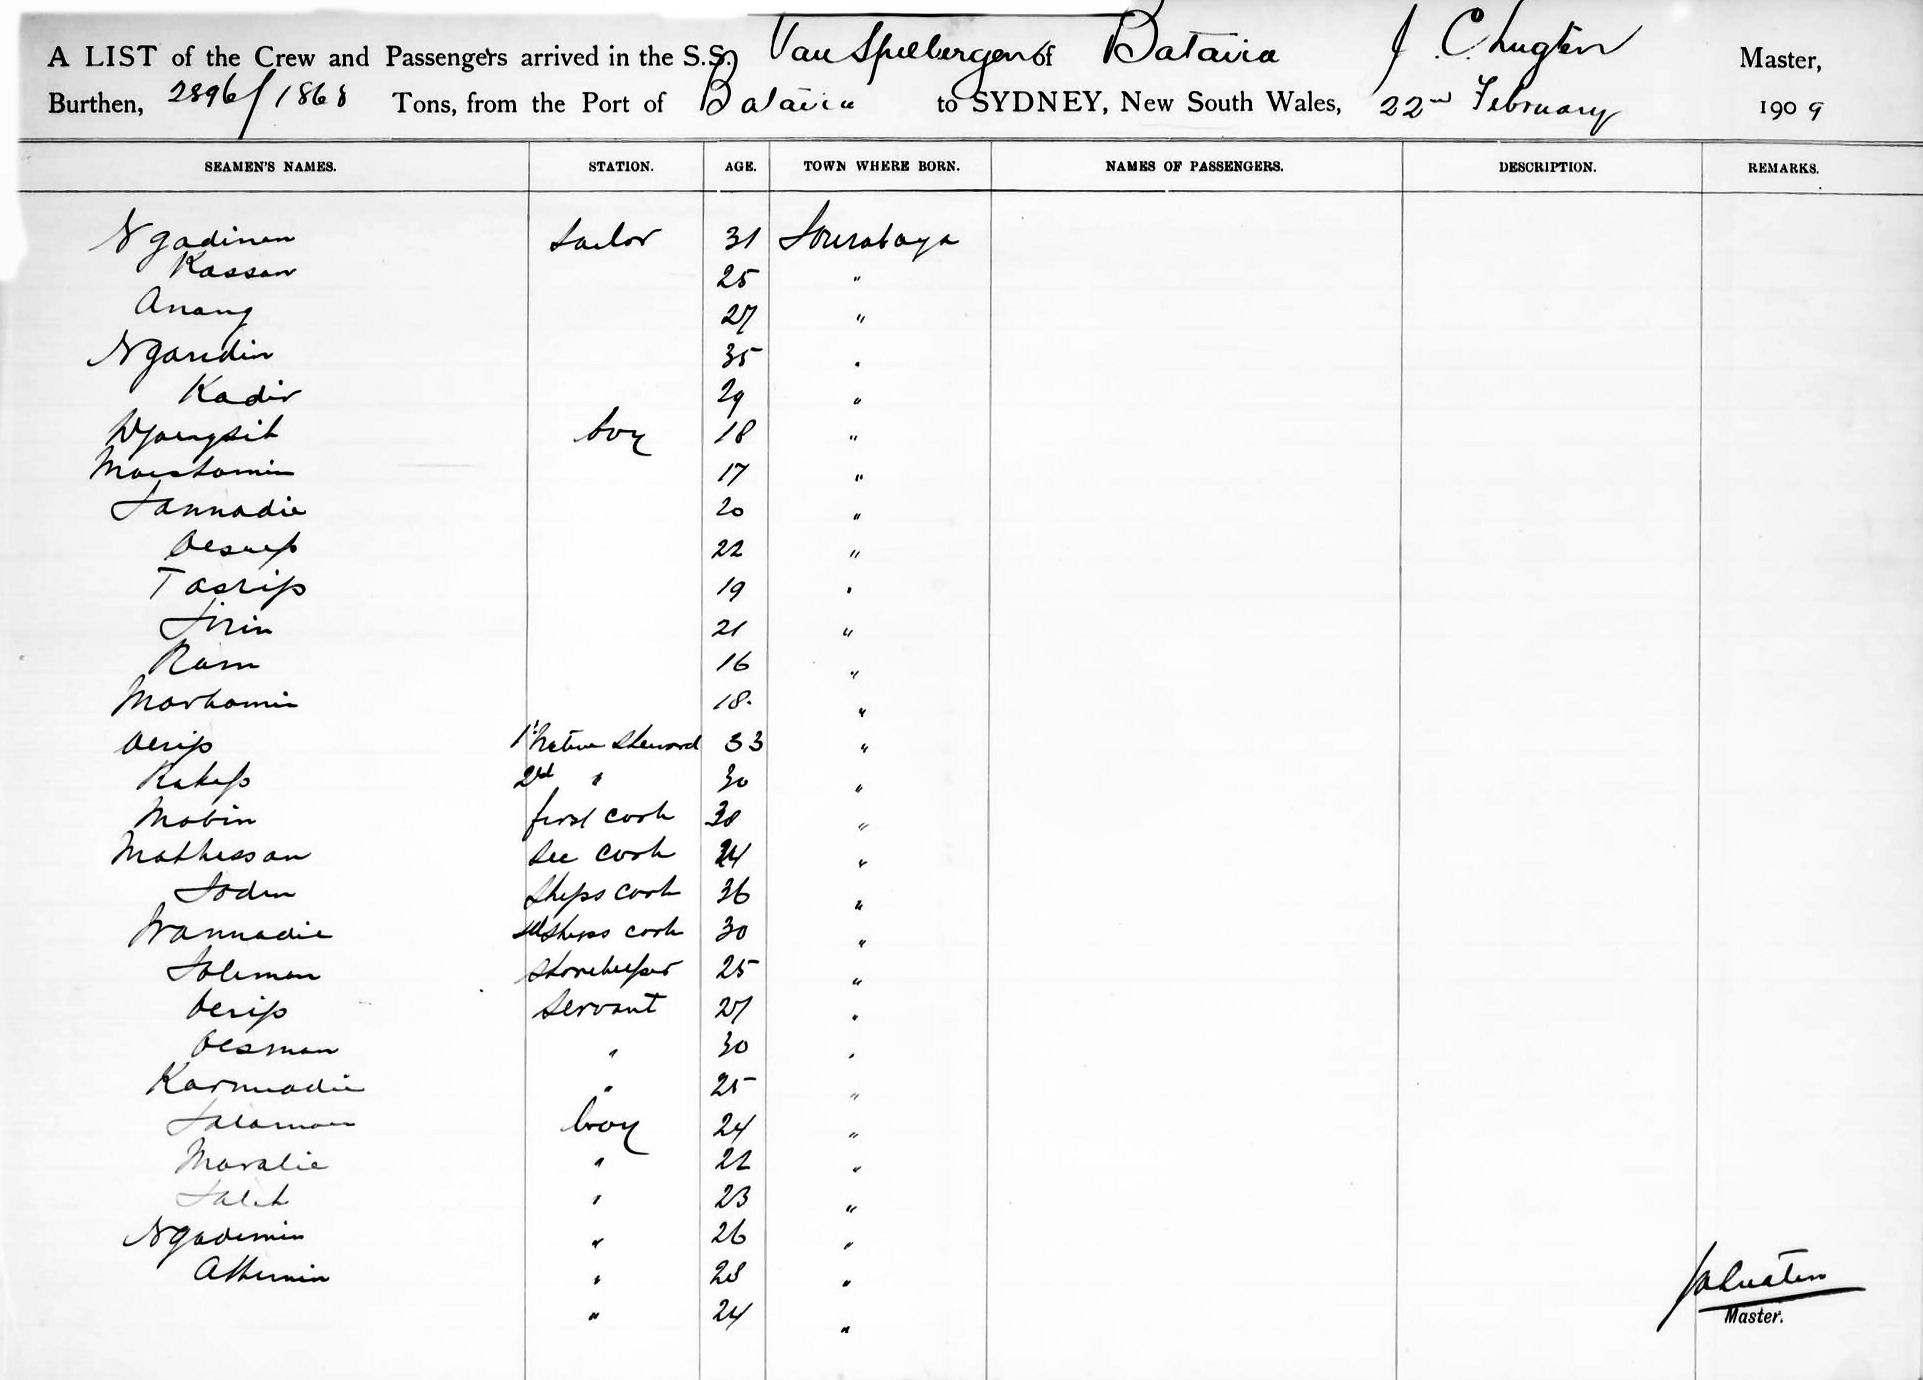 A LIST of the Crew and Passengers arrived in the S.S. Van Spilbergen of Batavia J. C. Lugten Master,
Burthen, 2896/1868 Tons, from the Port of Batavia to SYDNEY, New South Wales, 22nd February 1909
SEAMEN'S NAMES. STATION. AGE. TOWN WHERE BORN. NAMES OF PASSENGERS. DESCRIPTION. REMARKS.
Ngadinen sailor 31 Sourabaya
Kassan 25 "
Anang 27 "
Ngaridin 35 "
Kadir 29 "
boy 18 "
Moestamin 17 "
Sannadie 20 "
Oesup 22 "
Tasrip 19 "
Sirin 21 "
Ram 16 "
Marhamin 18 "
Oerip 1st Native Steward 33 "
Kakep 2nd " 30 "
Mobin first cook 38 "
Mathessan sec cook 24 "
Sodin Ships cook 36 "
Wannadie Ships cook 30 "
Soleman storekeeper 25 "
Oerip servant 27 "
Oesman " 30 "
Karmadie " 25 "
boy 24 "
Maralie " 22 "
Saleh " 23 "
Ngademin " 26 "
Atthemin " 28 "
" 24 "
Master.